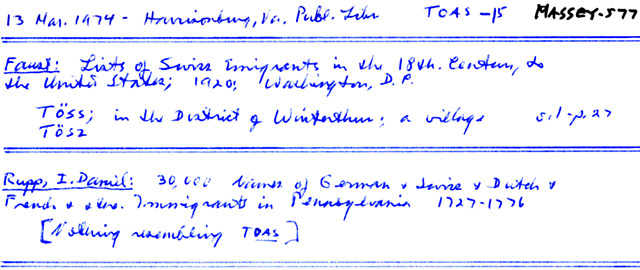 13 Mar. 1974 - Harrisonburg, Va. Publ. Libr TOAS -15 MASSEY-577
Faust: Lists of Swiss Emigrants in the 18th. Century, to
the United States; 1920; Washington, D.C.
TÖSS; in the District of Winterthur; a village v.1-p.27
TÖSZ
Rupp, I. Daniel: 30,000 Names of German & Swiss & Dutch &
French & other Immigrants in Pennsylvania 1727-1776
[Nothing resembling TOAS]